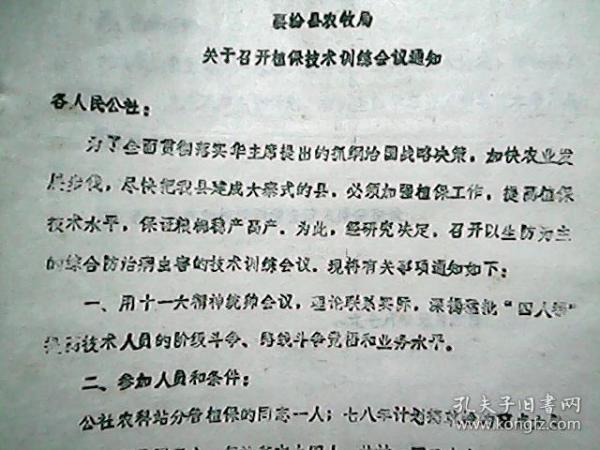 襄汾县农牧局
关于召开植保技术训练会议通知
各人民公社：
为了全面贯彻落实华主席提出的抓纲治国战略决策，加快农业发
展步伐，尽快把我县建成大寨式的县，必须加强植保工作，提高植保
技术水平，保证粮棉稳产高产。为此，经研究决定，召开以生防为主
的综合防治病虫害的技术训练会议。现将有关事项通知如下：
一、用十一大精神统帅会议，理论联系实际，深揭透批“四人帮”
提高技术人员的阶级斗争、路线斗争觉悟和业务水平。
二、参加人员和条件：
公社农科站分管植保的同志一人；七八年计划
孔夫子旧书网
www.kongfz.com